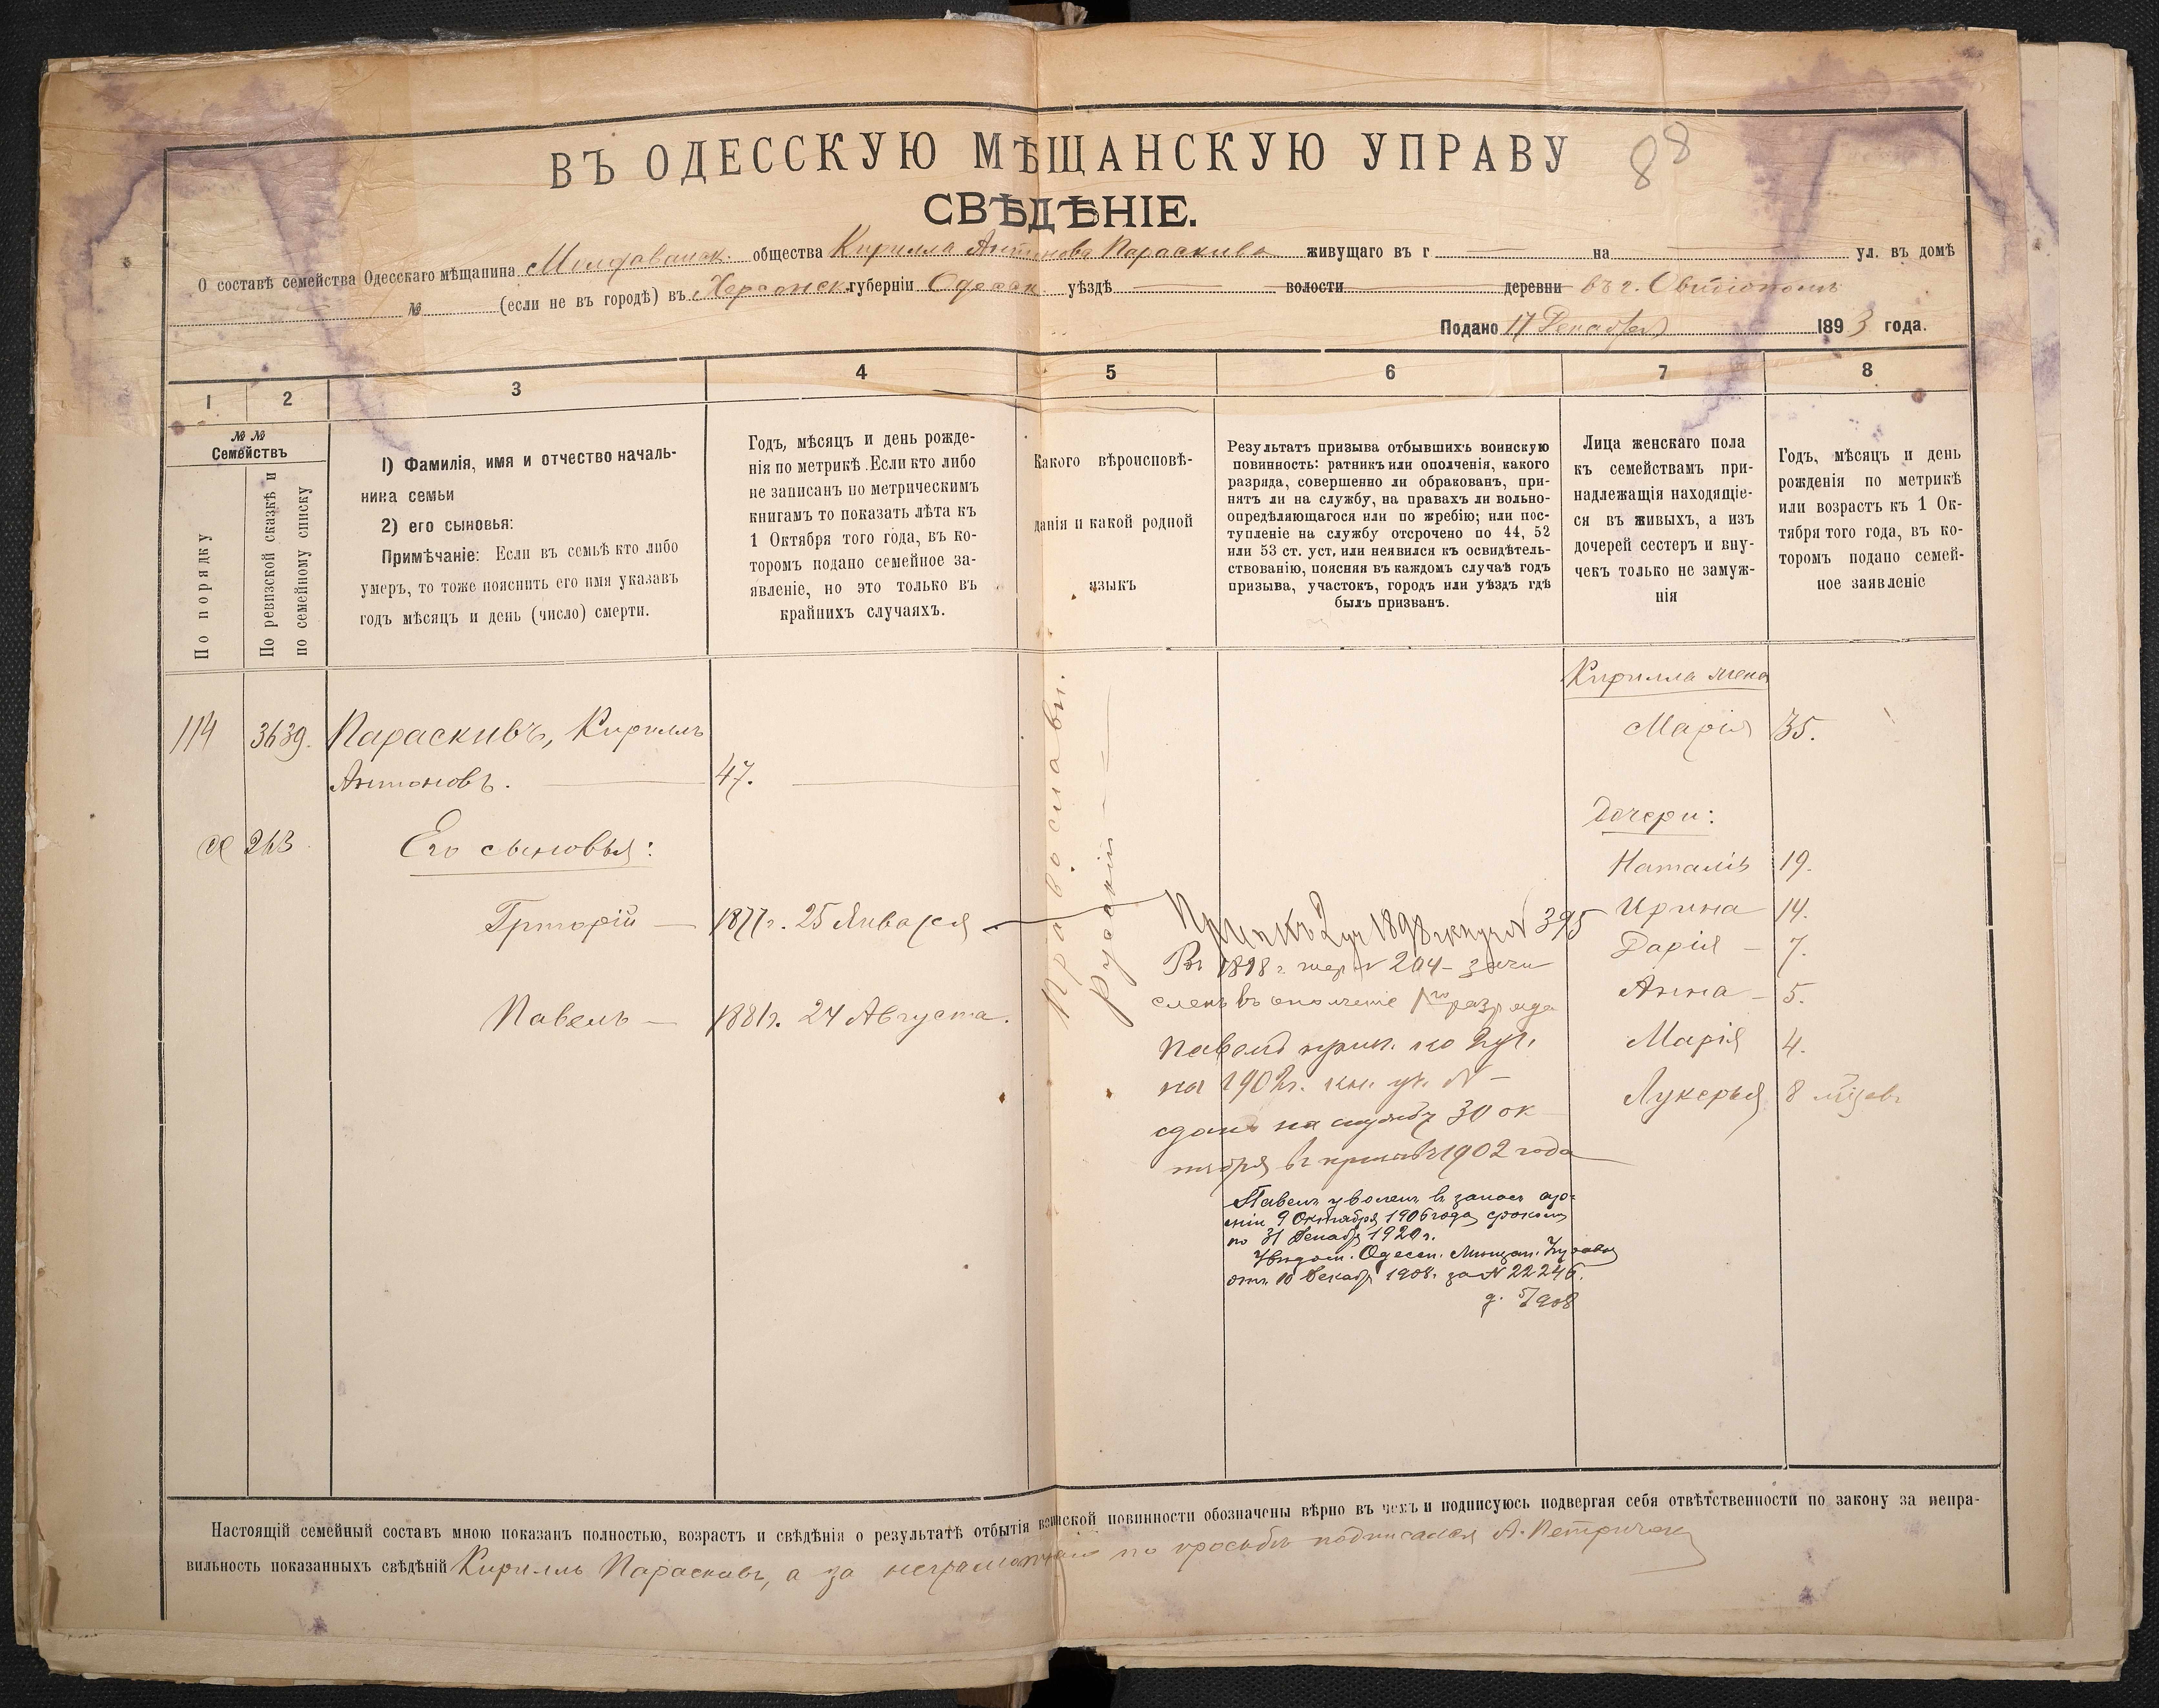 88
ВЪ ОДЕССКУЮ МѢЩАНСКУЮ УПРАВУ
СВѢДѢНІЕ.
О составѣ семейства Одесскаго мѣщанина Молдаванск. общества Кирилла Антонова Параскива живущаго въ г на ул. въ домѣ
№ (если не въ городѣ) въ Херсонск. губерніи Одесск. уѣздѣ волости деревни въ г. Овидіополѣ
Подано 17 Декабря 1893 года.
1 2 3 4 5 6 7 8
№ №
Семействъ
По порядку
По ревизской сказкѣ и
по семейному списку
1) Фамилія, имя и отчество началь-
ника семьи
2) его сыновья:
Примѣчаніе: Если въ семьѣ кто либо
умеръ, то тоже пояснить его имя указавъ
годъ мѣсяцъ и день (число) смерти.
Годъ, мѣсяцъ и день рожде-
нія по метрикѣ. Если кто либо
не записанъ по метрическимъ
книгамъ то показать лѣта къ
1 Октября того года, въ ко-
торомъ подано семейное за-
явленіе, но это только въ
крайнихъ случаяхъ.
Какого вѣроисповѣ-
данія и какой родной
языкъ
Результатъ призыва отбывшихъ воинскую
повинность: ратникъ или ополченія, какого
разряда, совершенно ли обракованъ, при-
нятъ ли на службу, на правахъ ли вольно-
опредѣляющагося или по жребію; или пос-
тупленіе на службу отсрочено по 44, 52
или 53 ст. уст. или неявился къ освидѣтель-
ствованію, поясняя въ каждомъ случаѣ годъ
призыва, участокъ, городъ или уѣздъ гдѣ
былъ призванъ.
Лица женскаго пола
къ семействамъ при-
надлежащія находящіе-
ся въ живыхъ, а изъ
дочерей сестеръ и вну-
чекъ только не замуж-
нія
Годъ, мѣсяцъ и день
рожденія по метрикѣ
или возрастъ къ 1 Ок-
тября того года, въ ко-
торомъ подано семей-
ное заявленіе
114 3639. Параскивъ, Кириллъ
Антоновъ. 47.
263
Его сыновья:
Григорій — 1877 г. 25 Января
Павелъ — 1881 г. 24 Августа.
Православн.
русскій
1898 № 395
Въ 1898 г. жер. № 204 – зачи
сленъ въ ополченіе 1го разряда
Павелъ прип. ко 2 уч.
на 1902 г. кн. уч. № –
сданъ на службу 30 ок
тября въ призывъ 1902 года
Павелъ уволенъ въ запасъ ар-
міи 9 Октября 1906 года срокомъ
по 31 Декабр 1920 г.
Увѣдом. Одесск. Мѣщан. Управы
отъ 10 Декабр 1908. за № 22246.
1908
Кирилла жена
Марія 35.
Дочери:
Наталія 19.
Ирина 14.
Дарія – 7.
Анна – 5.
Марія 4.
Лукерья 8 мѣсяц.
Настоящій семейный составъ мною показанъ полностью, возрастъ и свѣдѣнія о результатѣ отбытія воинской повинности обозначены вѣрно въ чемъ и подписуюсь подвергая себя отвѣтственности по закону за непра-
вильность показанныхъ свѣдѣній Кириллъ Параскивъ, а за неграмотнаго по просьбѣ подписался А. Петричен